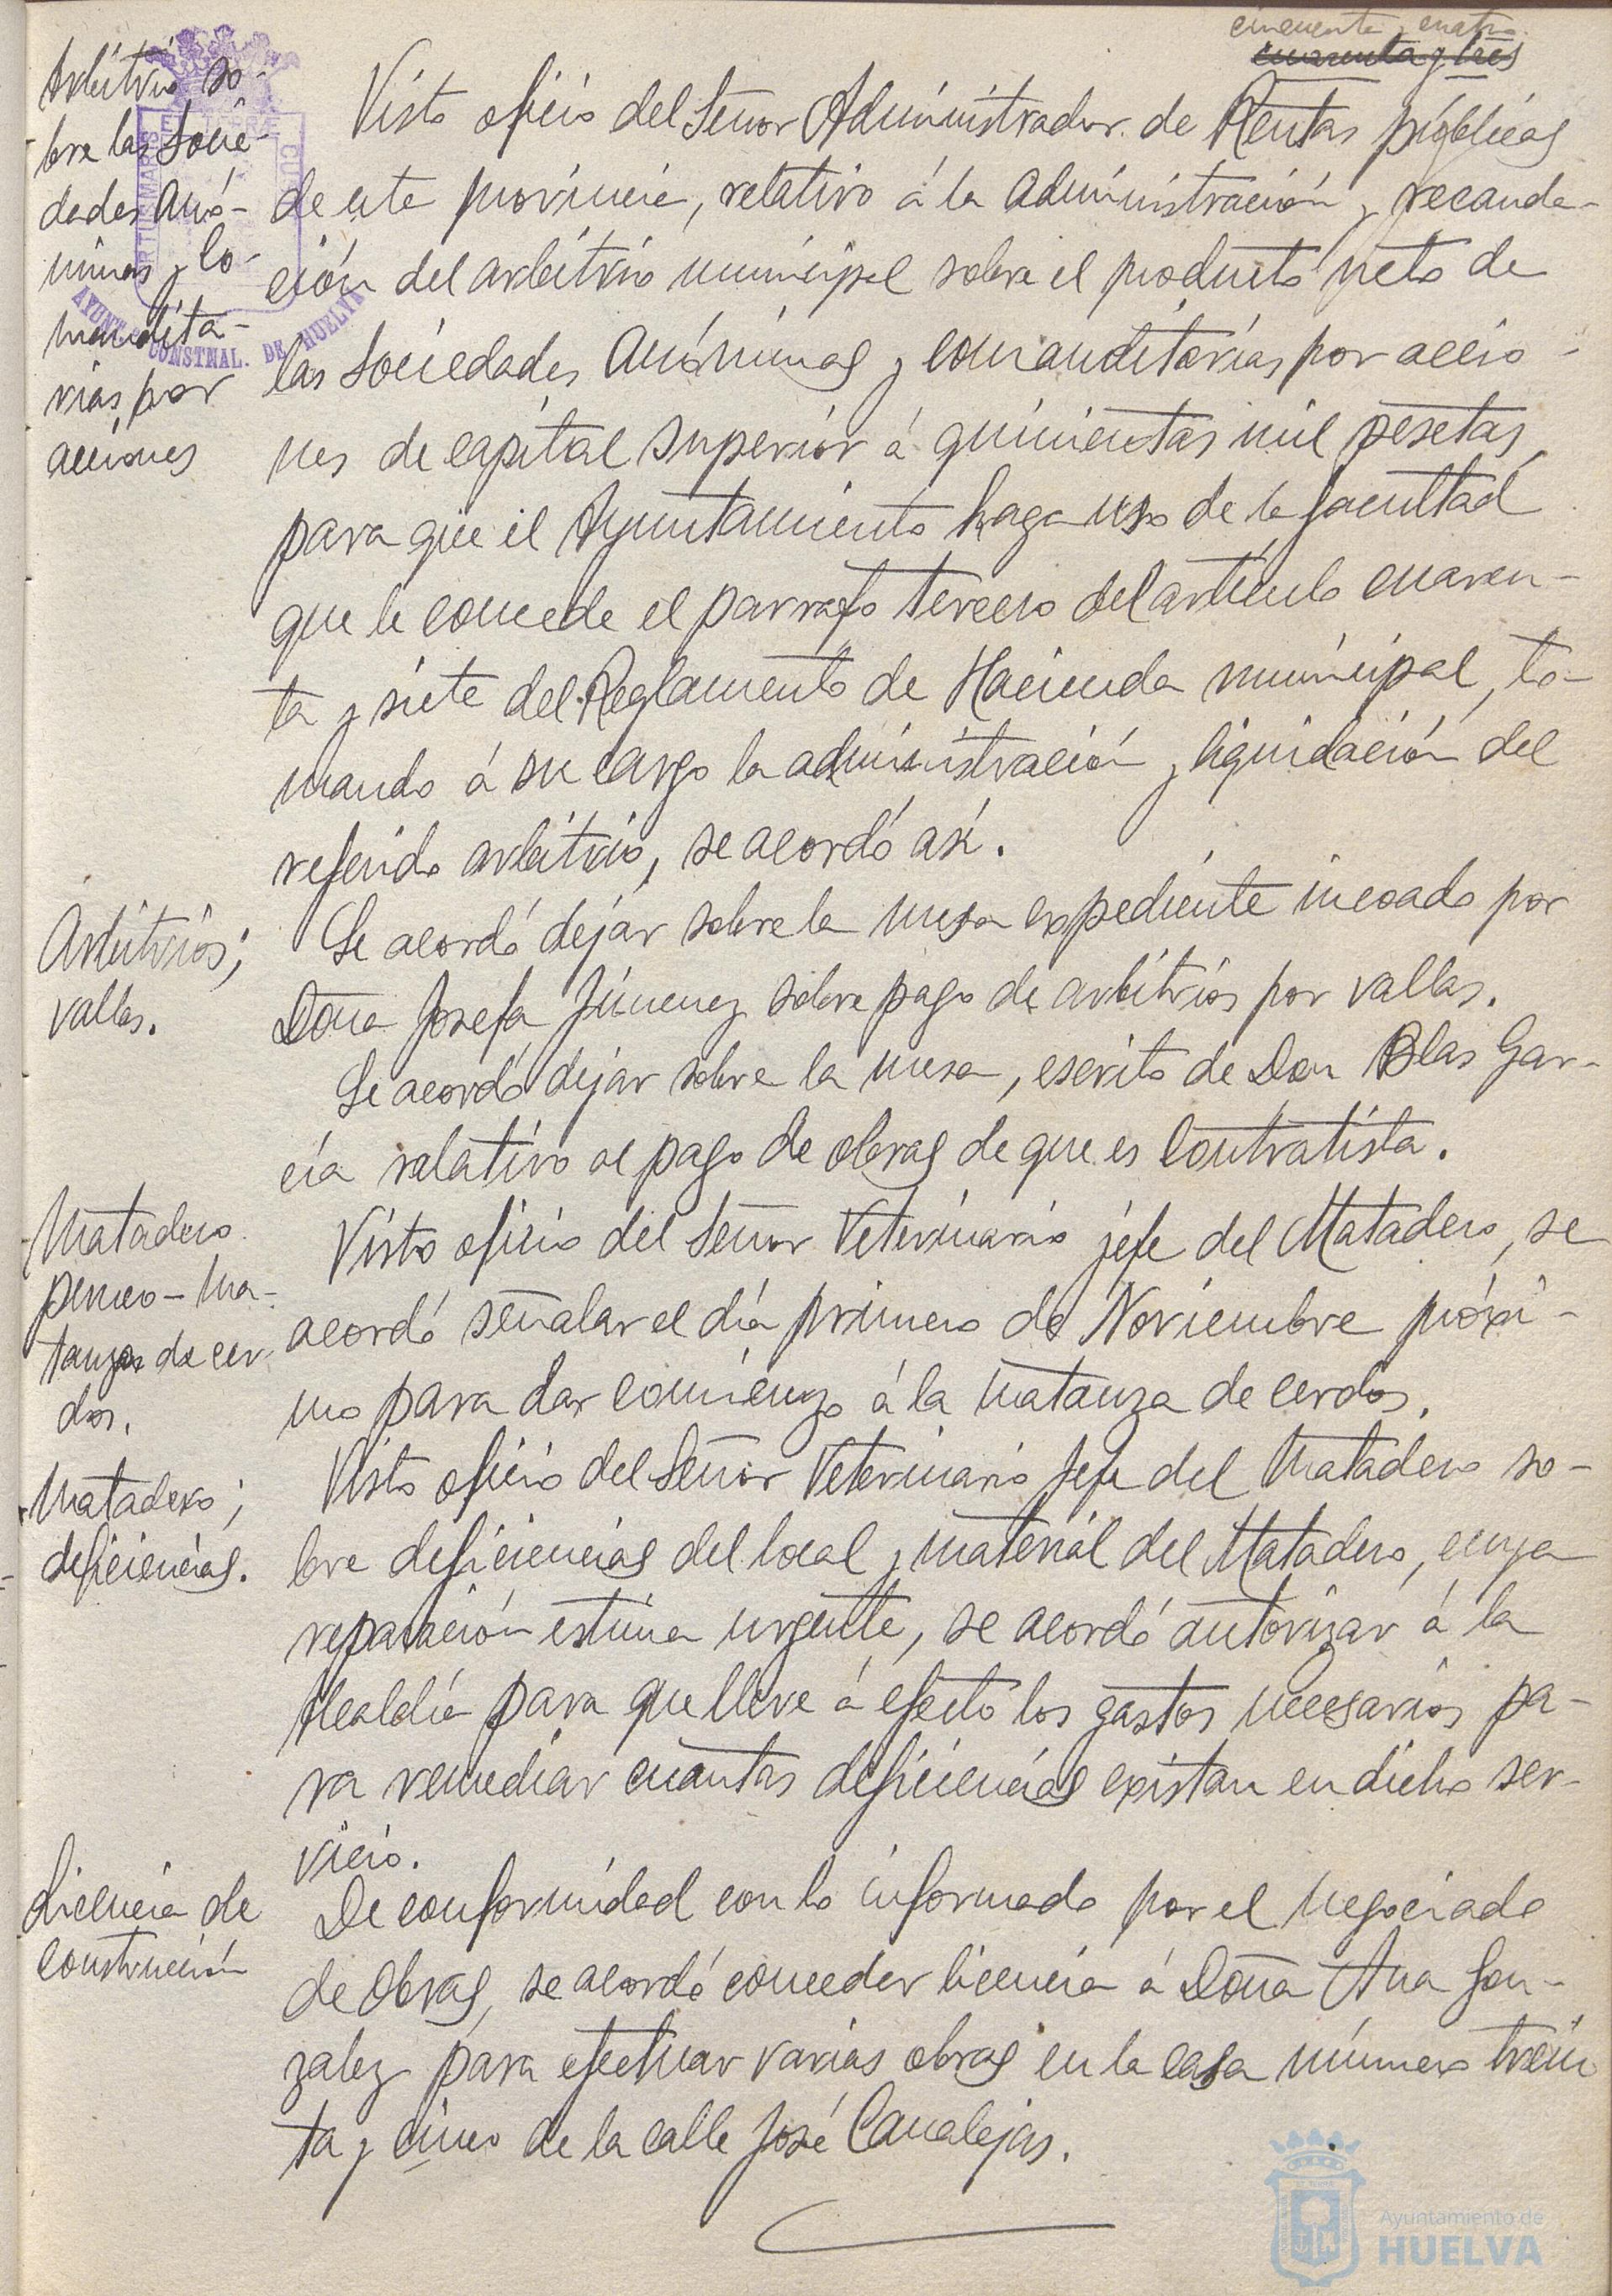 cincuenta y cuatro
cuarenta y tres
Arbitrio so-
bre las Socie-
dades Anó-
nimas y Co-
mandita-
rias por
acciones
PORTUM MARIS ET TERRE CUSTODIA
AYUNT.º CONSTNAL. DE HUELVA
Visto oficio del Señor Administrador de Rentas públicas
de esta provincia, relativo á la administración y recauda-
ción del arbitrio municipal sobre el producto neto de
las Sociedades Anónimas y comanditarias por accio-
nes de capital superior á quinientas mil pesetas,
para que el Ayuntamiento haga uso de la facultad
que le concede el parrafo tercero del artículo cuaren-
ta y siete del Reglamento de Hacienda municipal, to-
mando á su cargo la administración y liquidación del
referido arbitrio, se acordó así.
Arbitrios;
vallas.
Se acordó dejar sobre la mesa expediente incoado por
Doña Josefa Jimenez sobre pago de arbitrios por vallas.
Se acordó dejar sobre la mesa, escrito de Don Blas Gar-
cía relativo al pago de obras de que es Contratista.
Matadero
matanza de cer-
dos.
Visto oficio del Señor Veterinario jefe del Matadero, se
acordó señalar el día primero de Noviembre próxi-
mo para dar comienzo á la matanza de cerdos.
Matadero;
deficiencias.
Visto oficio del Señor Veterinario Jefe del Matadero so-
bre deficiencias del local y material del Matadero, cuya
reparación estima urgente, se acordó autorizar á la
Alcaldía para que lleve á efecto los gastos necesarios pa-
ra remediar cuantas deficiencias existan en dicho ser-
vicio.
Licencia de
construcción
De conformidad con lo informado por el negociado
de Obras, se acordó conceder licencia á Doña Ana Gon-
zalez para efectuar varias obras en la casa número trein
ta y cinco de la calle José Canalejas.
Ayuntamiento de
HUELVA